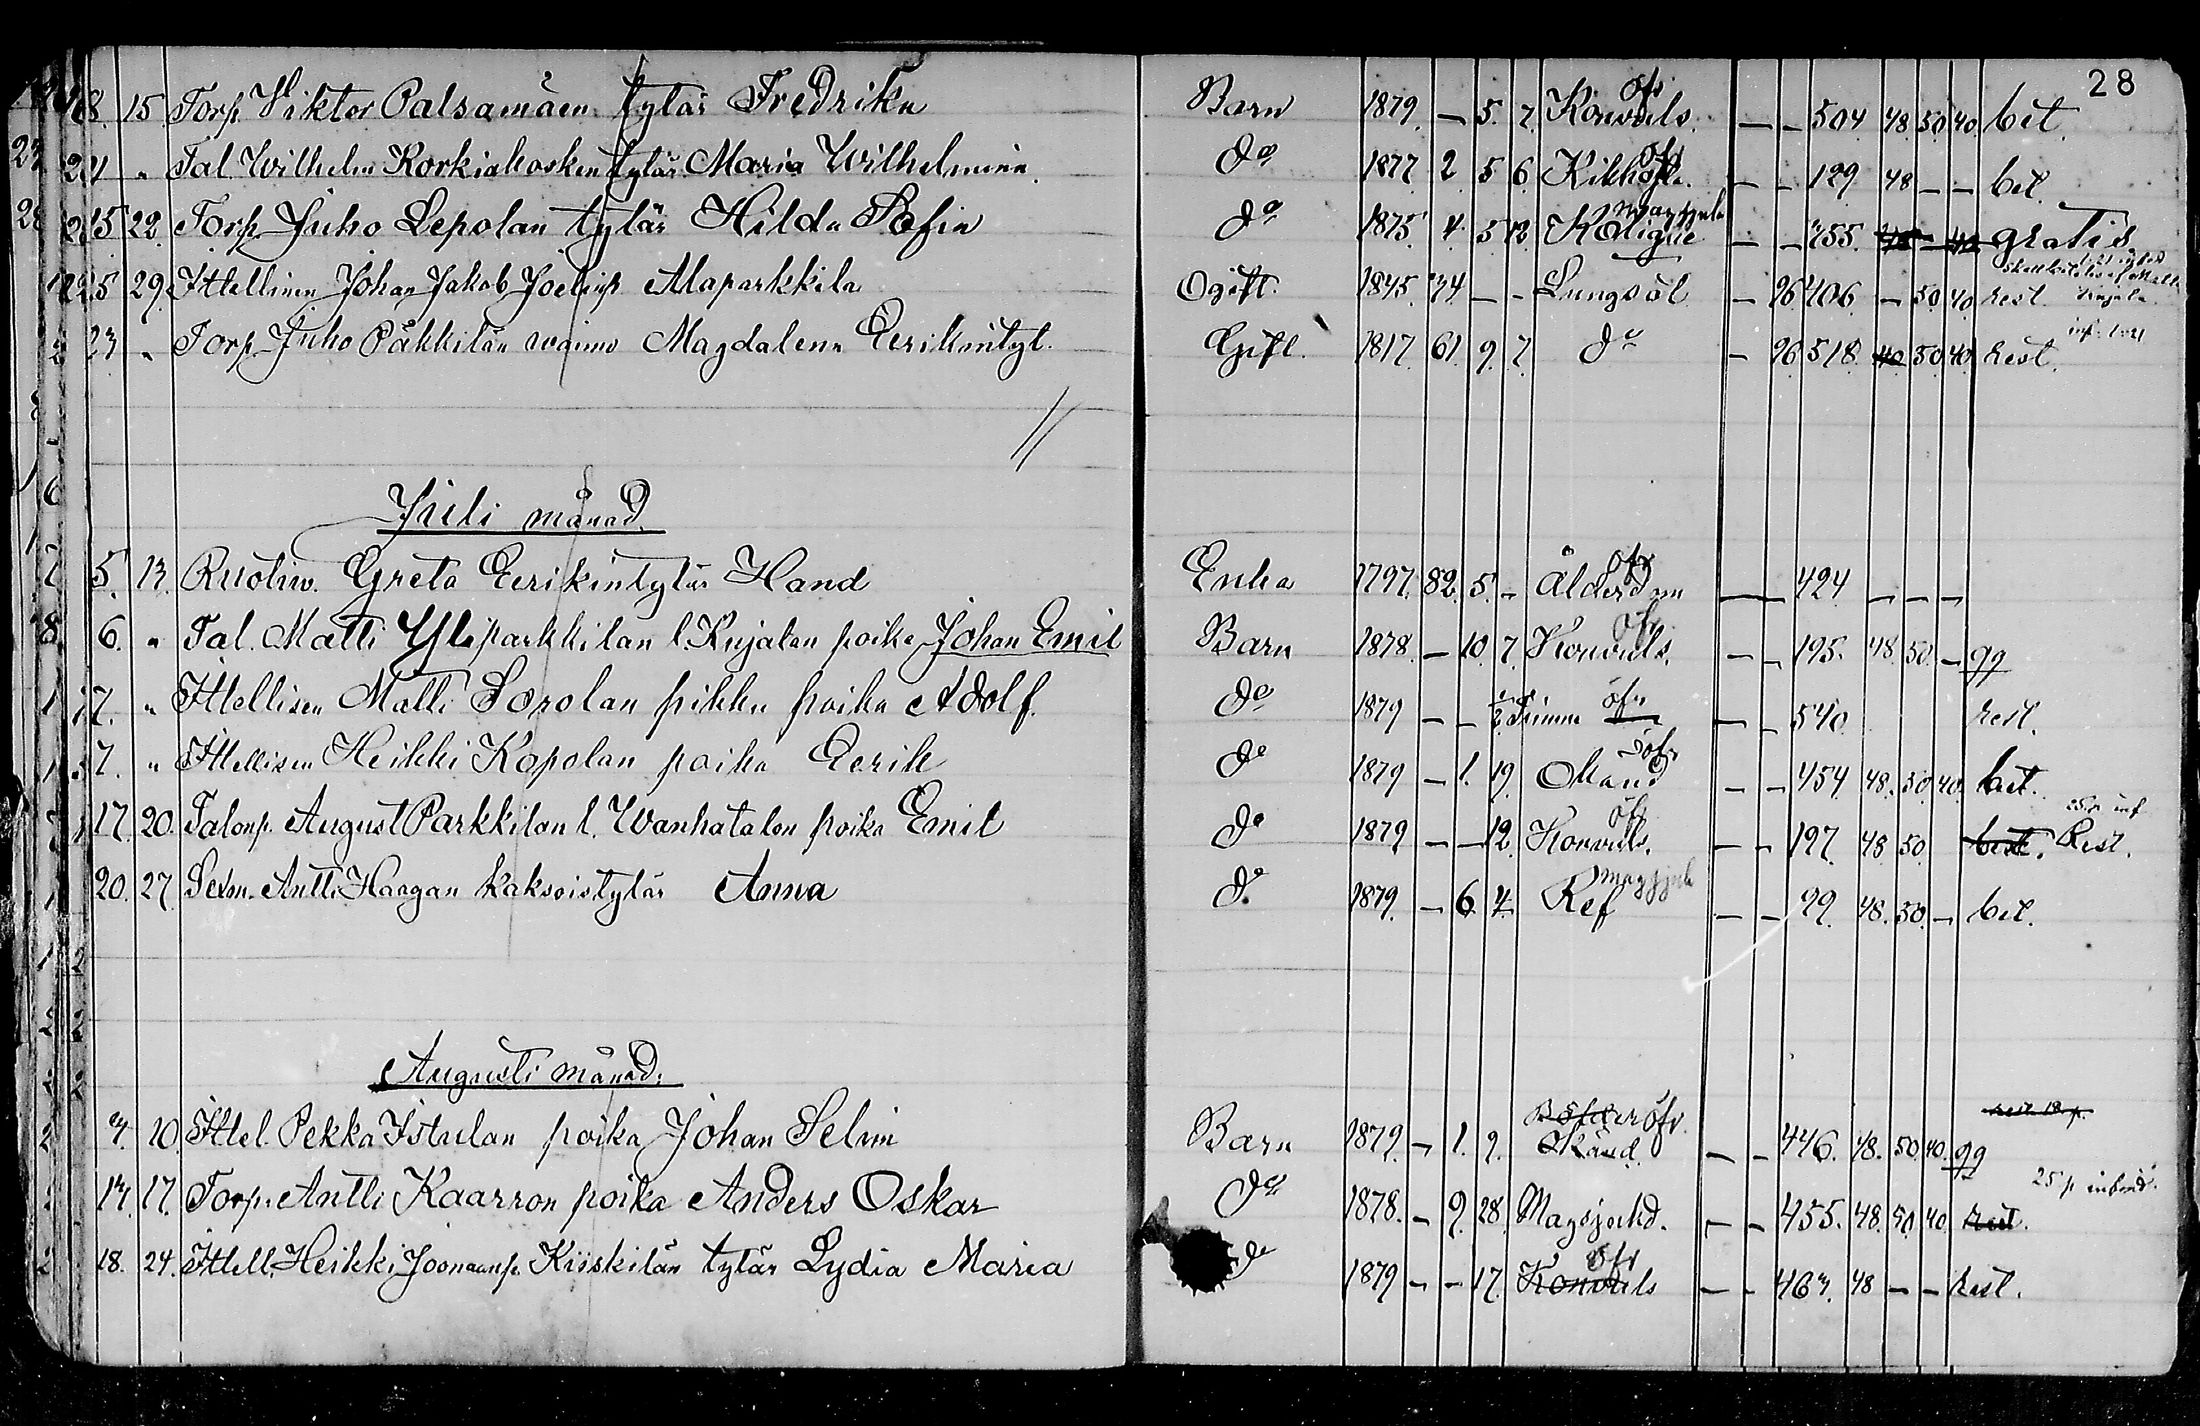 28
18. 15. Torp. Viktor Palsamäen tytär Fredrika Barn 1879. — 5. 7. Konvuls. öfr — — 504 48 50 40. bet.
21 " Tal. Wilhelm Korkiakosken tytär Maria Wilhelmina. Do 1877 2 5 6 Kikhosta. öfr — — 129 48 — — bet.
15 22. Torp. Juho Lepolan tytär Hilda Sofia Do 1875. 4. 5 12 Kolique — — 455. gratis
25 29. Ittellinen Johan Jakob Joelinp. Alaparkkila Ogift. 1845. 34 — — Lungsöt — 26 406 — 50 40 rest
23 " Torp. Juho Päkkilän waimo Magdalena Eerikintyt. Gift. 1817. 61. 9. 7. Do — 26. 518. 40 50 40. Rest.
Juli månad.
5. 13. Ruotiw. Greta Eerikintytär Hand Enka 1797. 82. 5. — Ålderdom öfr — — 424 — — —
6. " Tal. Matti Yliparkkilan l. Kujalan poika Johan Emil Barn 1878. — 10. 7. Konvuls. öfr — — 195. 48. 50. — gg
17. " Ittellisen Matti Sorolan pikku poika Adolf. Do 1879 — — ½ timma öfr — — 540 rest.
7. " Ittellisen Heikki Kopolan poika Eerik Do 1879 — 1. 19. Okänd öfr — — 454. 48. 50. 40. bet.
17. 20. Talonp. August Parkkilan l. Wanhatalon poika Emil Do 1879 — — 12. Konvuls. öfr — — 197. 48 50. bet. Rest. 25 p inf
20. 27. Sexm. Antti Haagan kaksoistytär Anna Do 1879. — 6. 4. Ref magsjuk — — 99. 48. 50. — bet.
Augusti månad.
4. 10. Ittel. Pekka Istulan poika Johan Selim Barn 1879. — 1. 9. Okänd. öfr. — — 446. 48. 50. 40. gg rest 18 p.
14. 17. Torp. Antti Kaarron poika Anders Oskar Do 1878. — 9. 28. Magsjukd. — — 455. 48. 50. 40. rest. 25 p
18. 24. Ittell. Heikki Joonaanp. Kiiskilän tytär Lydia Maria Do 1879 — — 17. Konvuls öfr — — 464. 48 — — Rest.